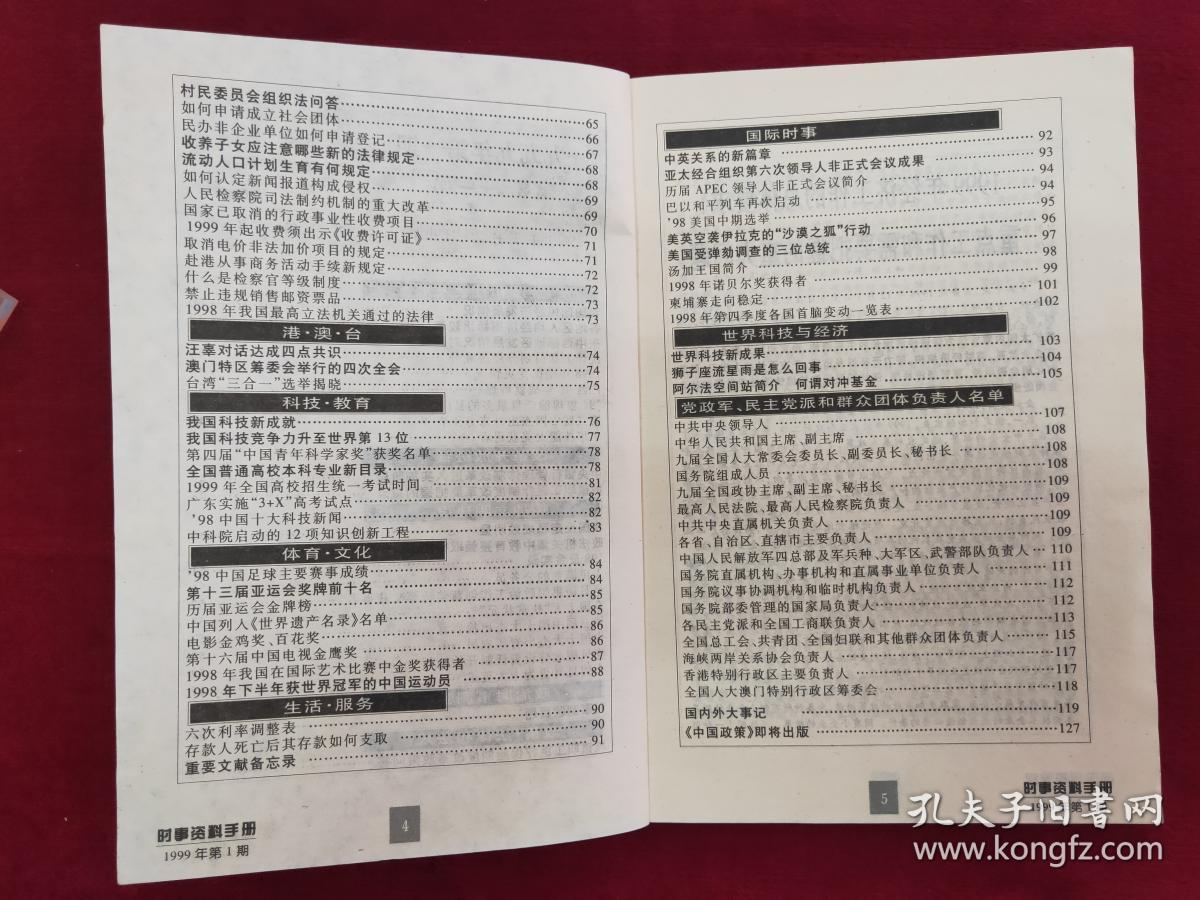 村民委员会组织法问答……65
如何申请成立社会团体……66
民办非企业单位如何申请登记……67
收养子女应注意哪些新的法律规定……68
流动人口计划生育有何规定……68
如何认定新闻报道构成侵权……69
人民检察院司法制约机制的重大改革……69
国家已取消的行政事业性收费项目……70
1999年起收费须出示《收费许可证》……71
取消电价非法加价项目的规定……71
赴港从事商务活动手续新规定……72
什么是检察官等级制度……72
禁止违规销售邮资票品……73
1998年我国最高立法机关通过的法律……73
港·澳·台
汪辜对话达成四点共识……74
澳门特区筹委会举行的四次全会……74
台湾“三合一”选举揭晓……75
科技·教育
我国科技新成就……76
我国科技竞争力升至世界第13位……77
第四届“中国青年科学家奖”获奖名单……78
全国普通高校本科专业新目录……78
1999年全国高校招生统一考试时间……81
广东实施“3+X”高考试点……82
’98中国十大科技新闻……82
中科院启动的12项知识创新工程……83
体育·文化
’98中国足球主要赛事成绩……84
第十三届亚运会奖牌前十名……84
历届亚运会金牌榜……85
中国列入《世界遗产名录》名单……85
电影金鸡奖、百花奖……86
第十六届中国电视金鹰奖……86
1998年我国在国际艺术比赛中金奖获得者……87
1998年下半年获世界冠军的中国运动员……88
生活·服务
六次利率调整表……90
存款人死亡后其存款如何支取……90
重要文献备忘录……91
时事资料手册
1999年第1期
4
国际时事
中英关系的新篇章……92
亚太经合组织第六次领导人非正式会议成果……93
历届APEC领导人非正式会议简介……94
巴以和平列车再次启动……94
’98美国中期选举……95
美英空袭伊拉克的“沙漠之狐”行动……96
美国受弹劾调查的三位总统……97
汤加王国简介……98
1998年诺贝尔奖获得者……99
柬埔寨走向稳定……101
1998年第四季度各国首脑变动一览表……102
世界科技与经济
世界科技新成果……103
狮子座流星雨是怎么回事……104
阿尔法空间站简介 何谓对冲基金……105
党政军、民主党派和群众团体负责人名单
中共中央领导人……107
中华人民共和国主席、副主席……108
九届全国人大常委会委员长、副委员长、秘书长……108
国务院组成人员……108
九届全国政协主席、副主席、秘书长……109
最高人民法院、最高人民检察院负责人……109
中共中央直属机关负责人……109
各省、自治区、直辖市主要负责人……109
中国人民解放军四总部及军兵种、大军区、武警部队负责人…110
国务院直属机构、办事机构和直属事业单位负责人……111
国务院议事协调机构和临时机构负责人……112
国务院部委管理的国家局负责人……112
各民主党派和全国工商联负责人……113
全国总工会、共青团、全国妇联和其他群众团体负责人……115
海峡两岸关系协会负责人……117
香港特别行政区主要负责人……117
全国人大澳门特别行政区筹委会……118
国内外大事记……119
《中国政策》即将出版……127
5
时事资料手册
1999年第1
孔夫子旧书网
www.kongfz.com